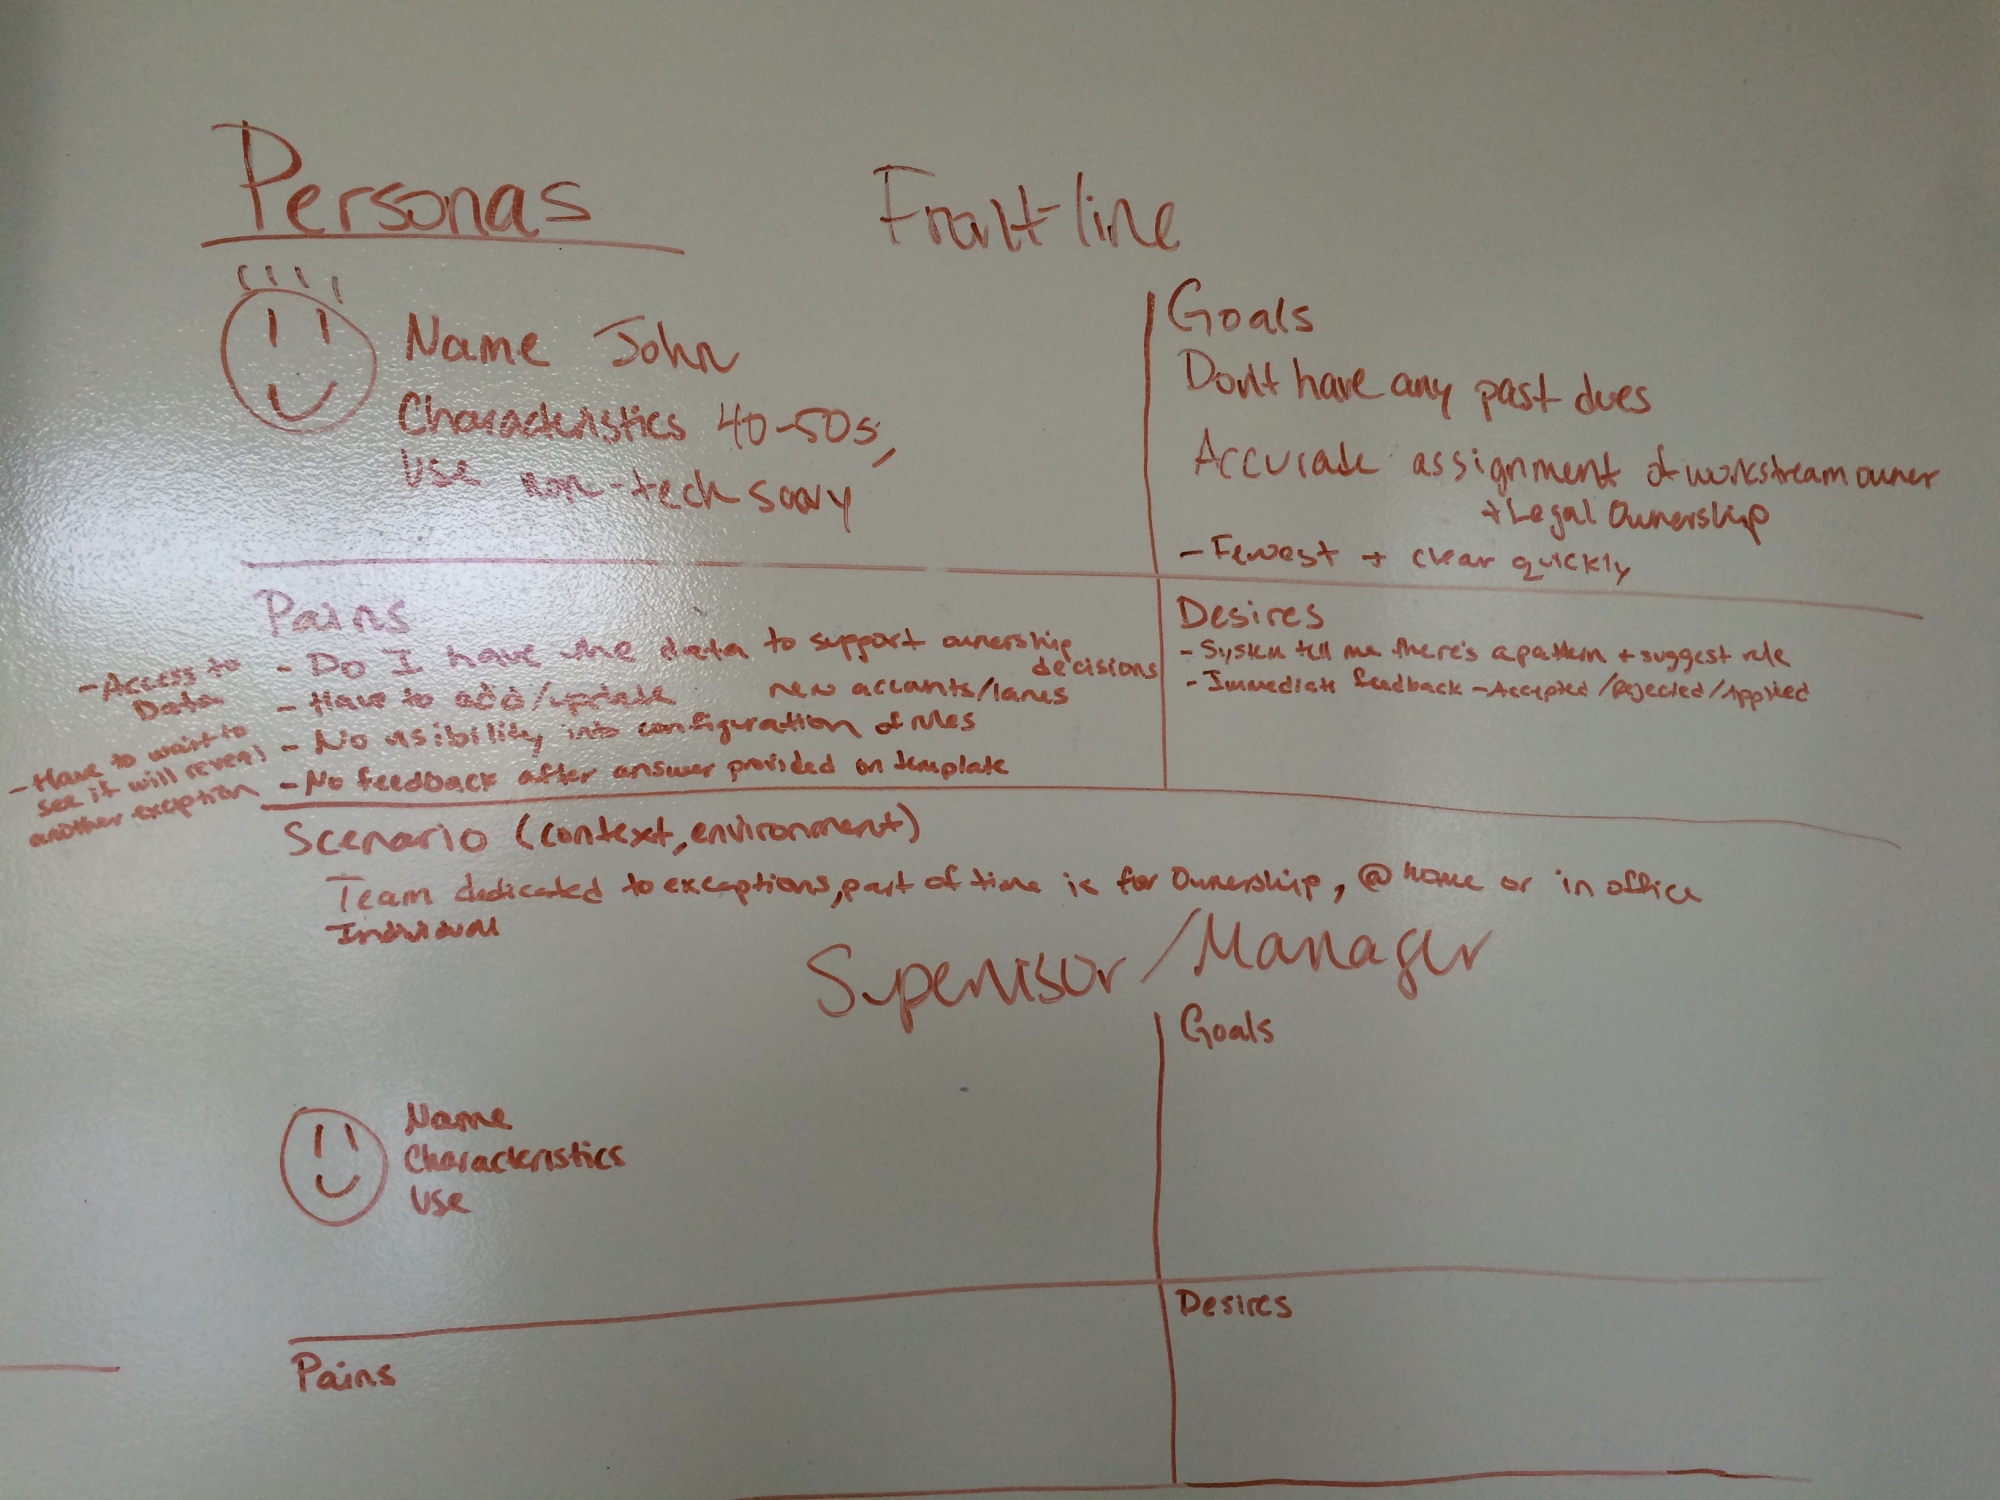 Personas
Frontline
Name John
Characteristics 40-50s,
Use non-tech savy
Goals
Don't have any past dues
Accurate assignment of workstream owner
+ Legal Ownership
- Fewest + clear quickly
Pains
- Do I have the data to support ownership
decisions
- Have to add/update new accounts/lanes
- No visibility into configuration of rules
- No feedback after answer provided on template
- Access to
Data
- Have to wait to
see if it will reveal
another exception
Desires
- System tell me there's a pattern + suggest rule
- Immediate feedback - Accepted/Rejected/Applied
Scenario (context, environment)
Team dedicated to exceptions, part of time is for Ownership, @ home or in office
Individual
Supervisor/Manager
Name
Characteristics
Use
Goals
Pains
Desires